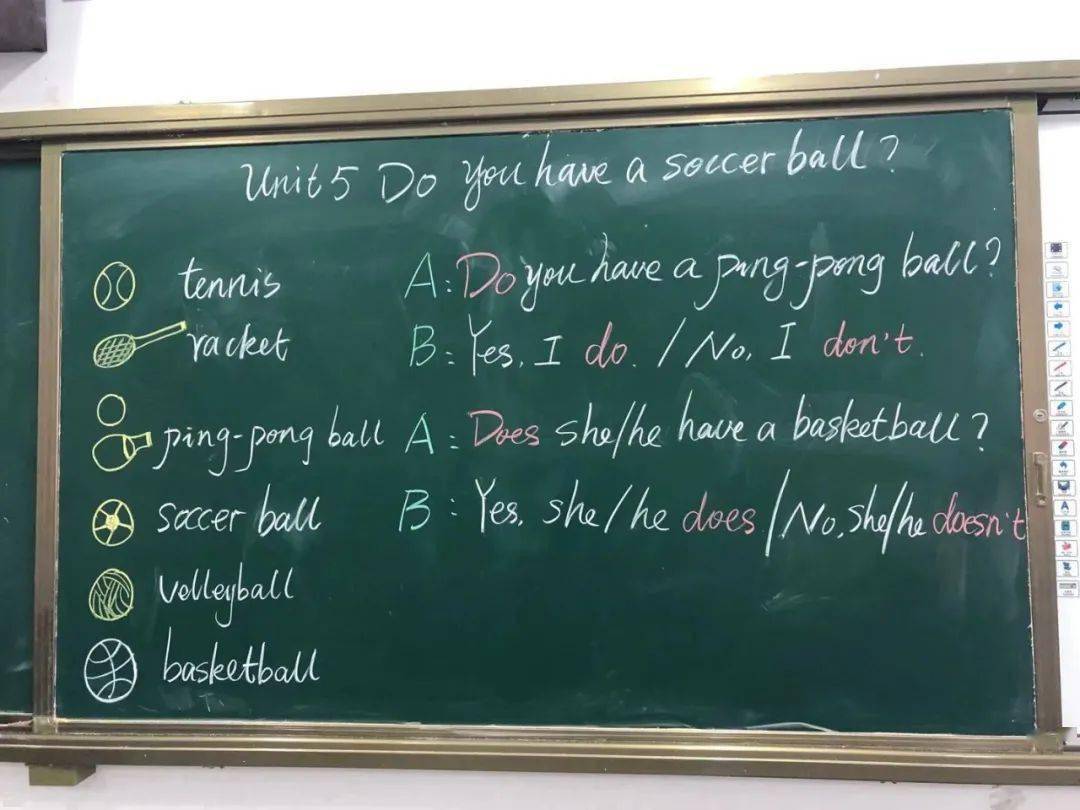 Unit 5 Do you have a soccer ball?
tennis
racket
ping-pong ball
soccer ball
velleyball
basketball
A: Do you have a ping-pong ball?
B: Yes, I do. / No, I don't.
A: Does she/he have a basketball?
B: Yes, she/he does / No, she/he doesn't